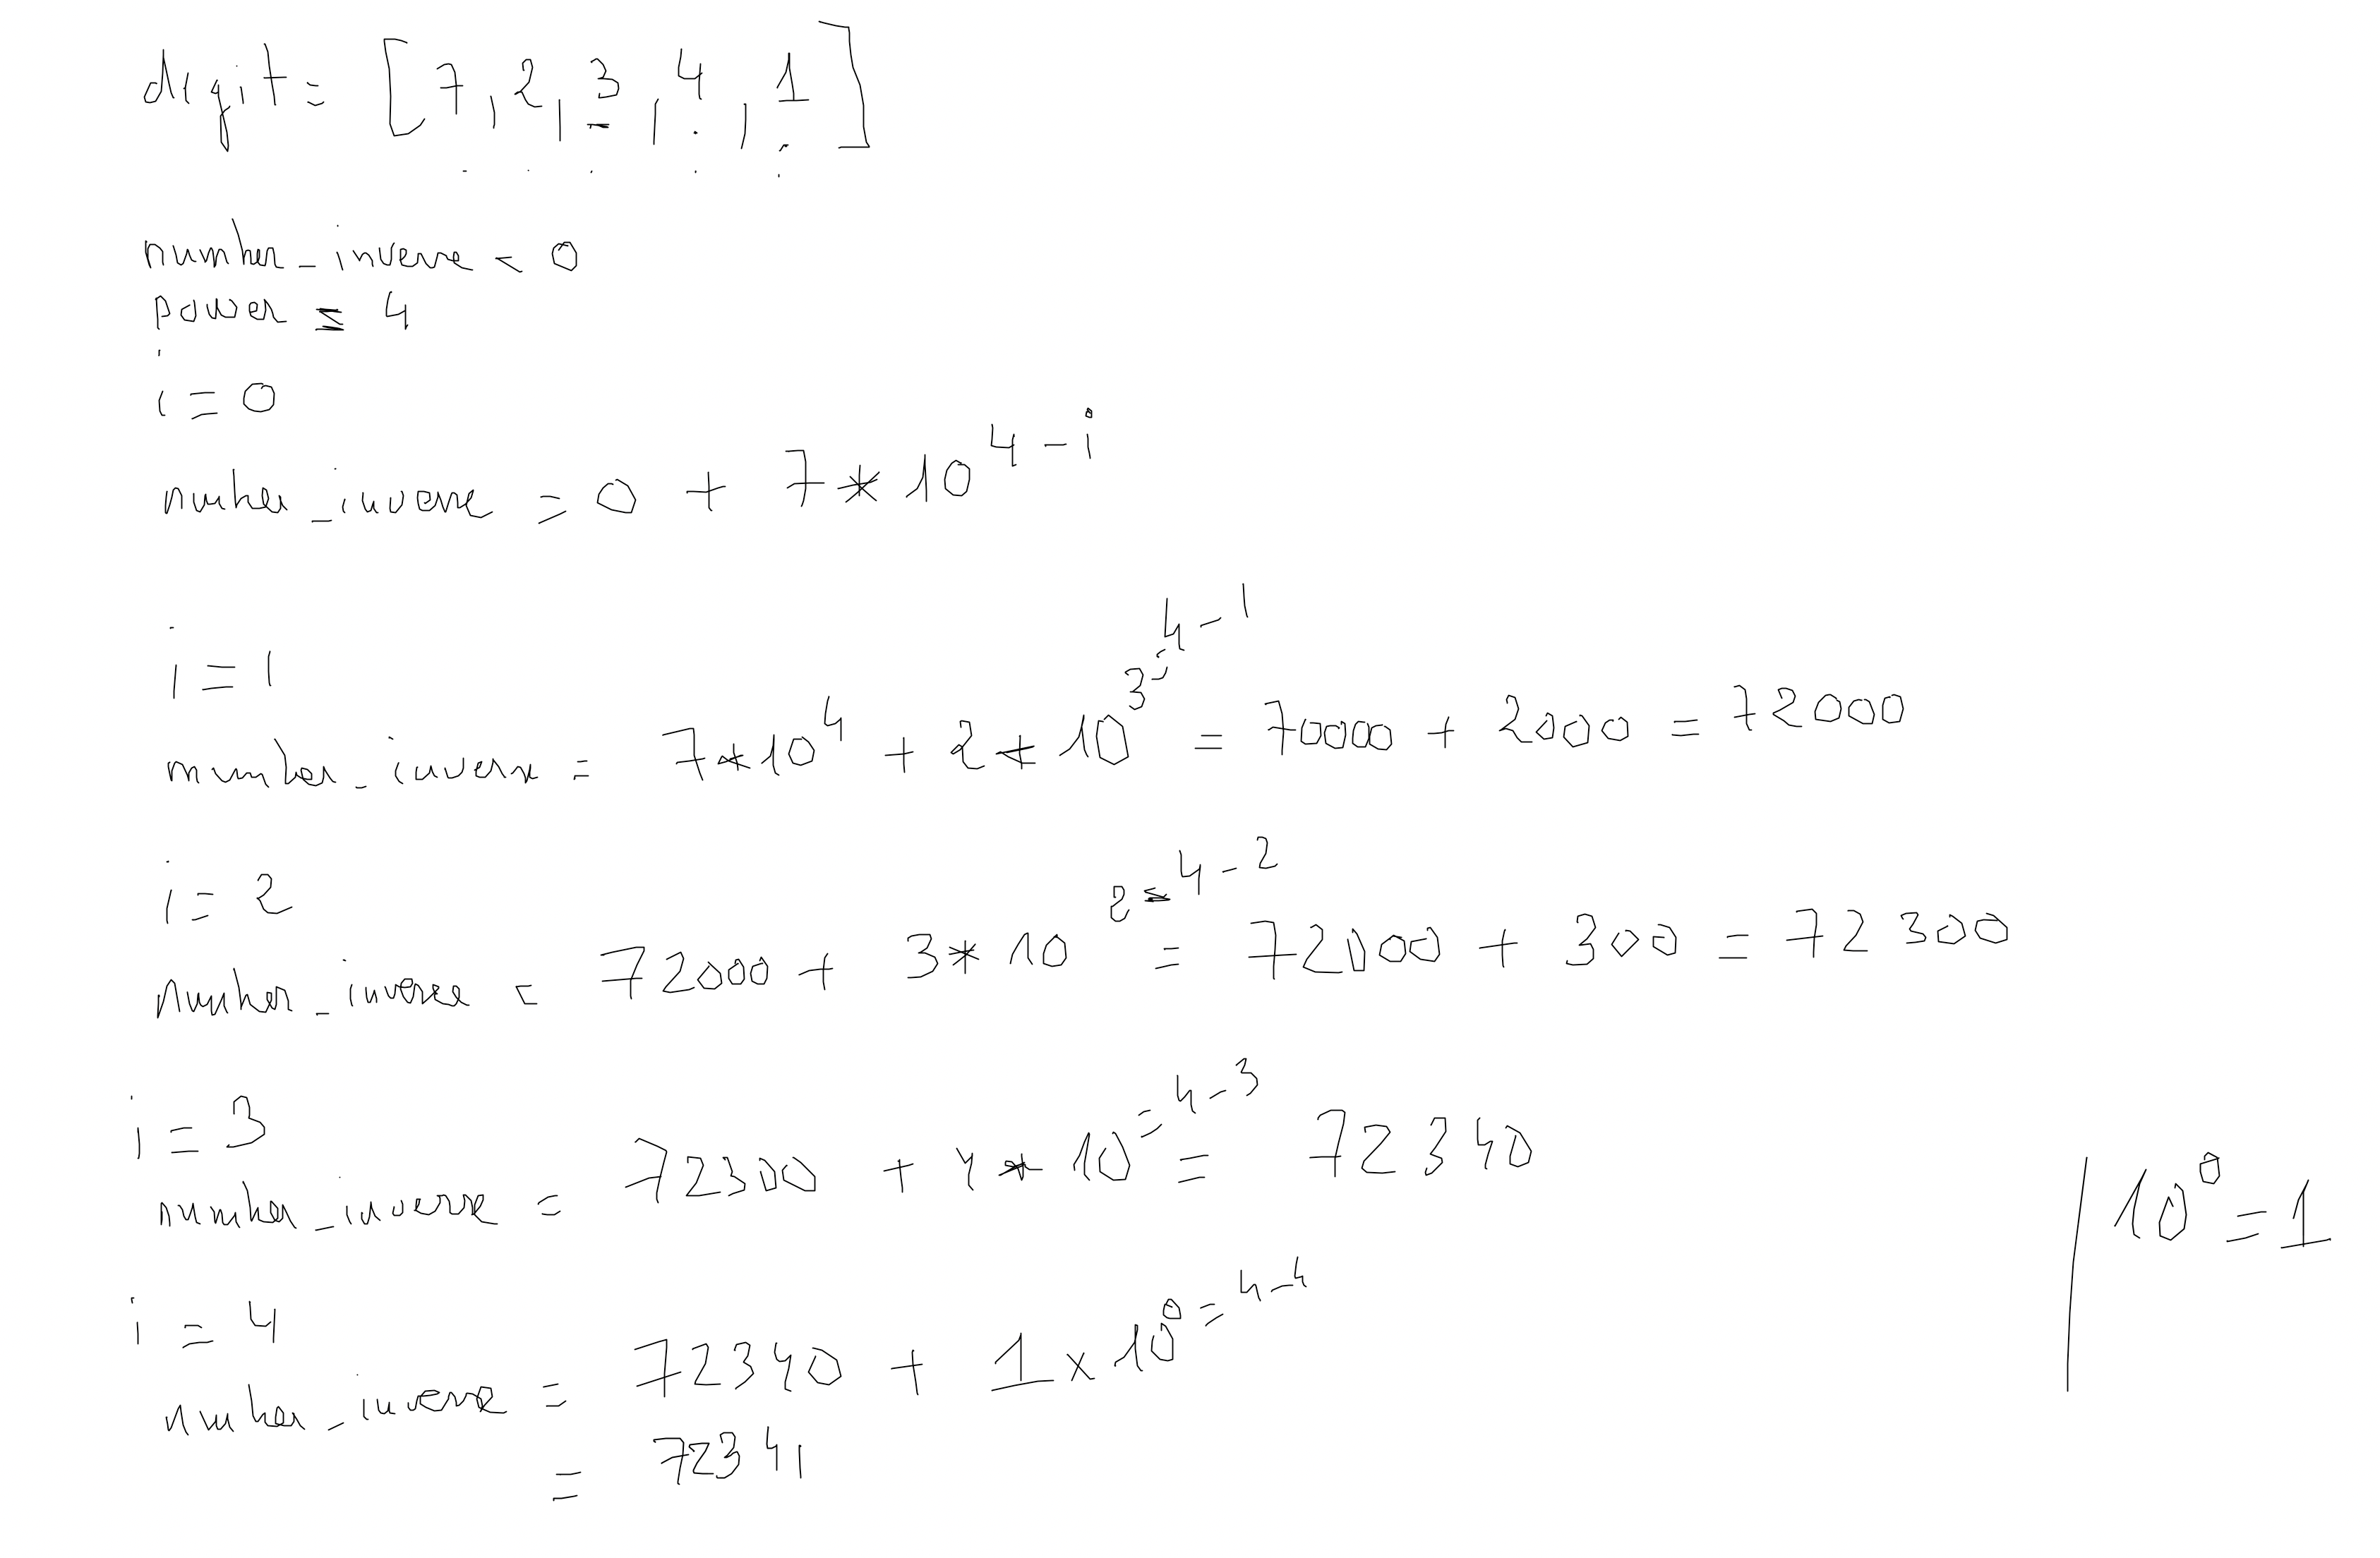 digit = [7, 2, 3, 4, 1]
number_inverse = 0
power = 4
i = 0
number_inverse = 0 + 7 * 10^4-i
i = 1
number_inverse = 7*10^4 + 2*10^3=4-1 = 70000 + 2000 = 72000
i = 2
number_inverse = 72000 + 3*10^2=4-2 = 72000 + 300 = 72300
i = 3
number_inverse = 72300 + 4*10^=4-3 = 72340
10^0 = 1
i = 4
number_inverse = 72340 + 1 x 10^0=4-4
= 72341